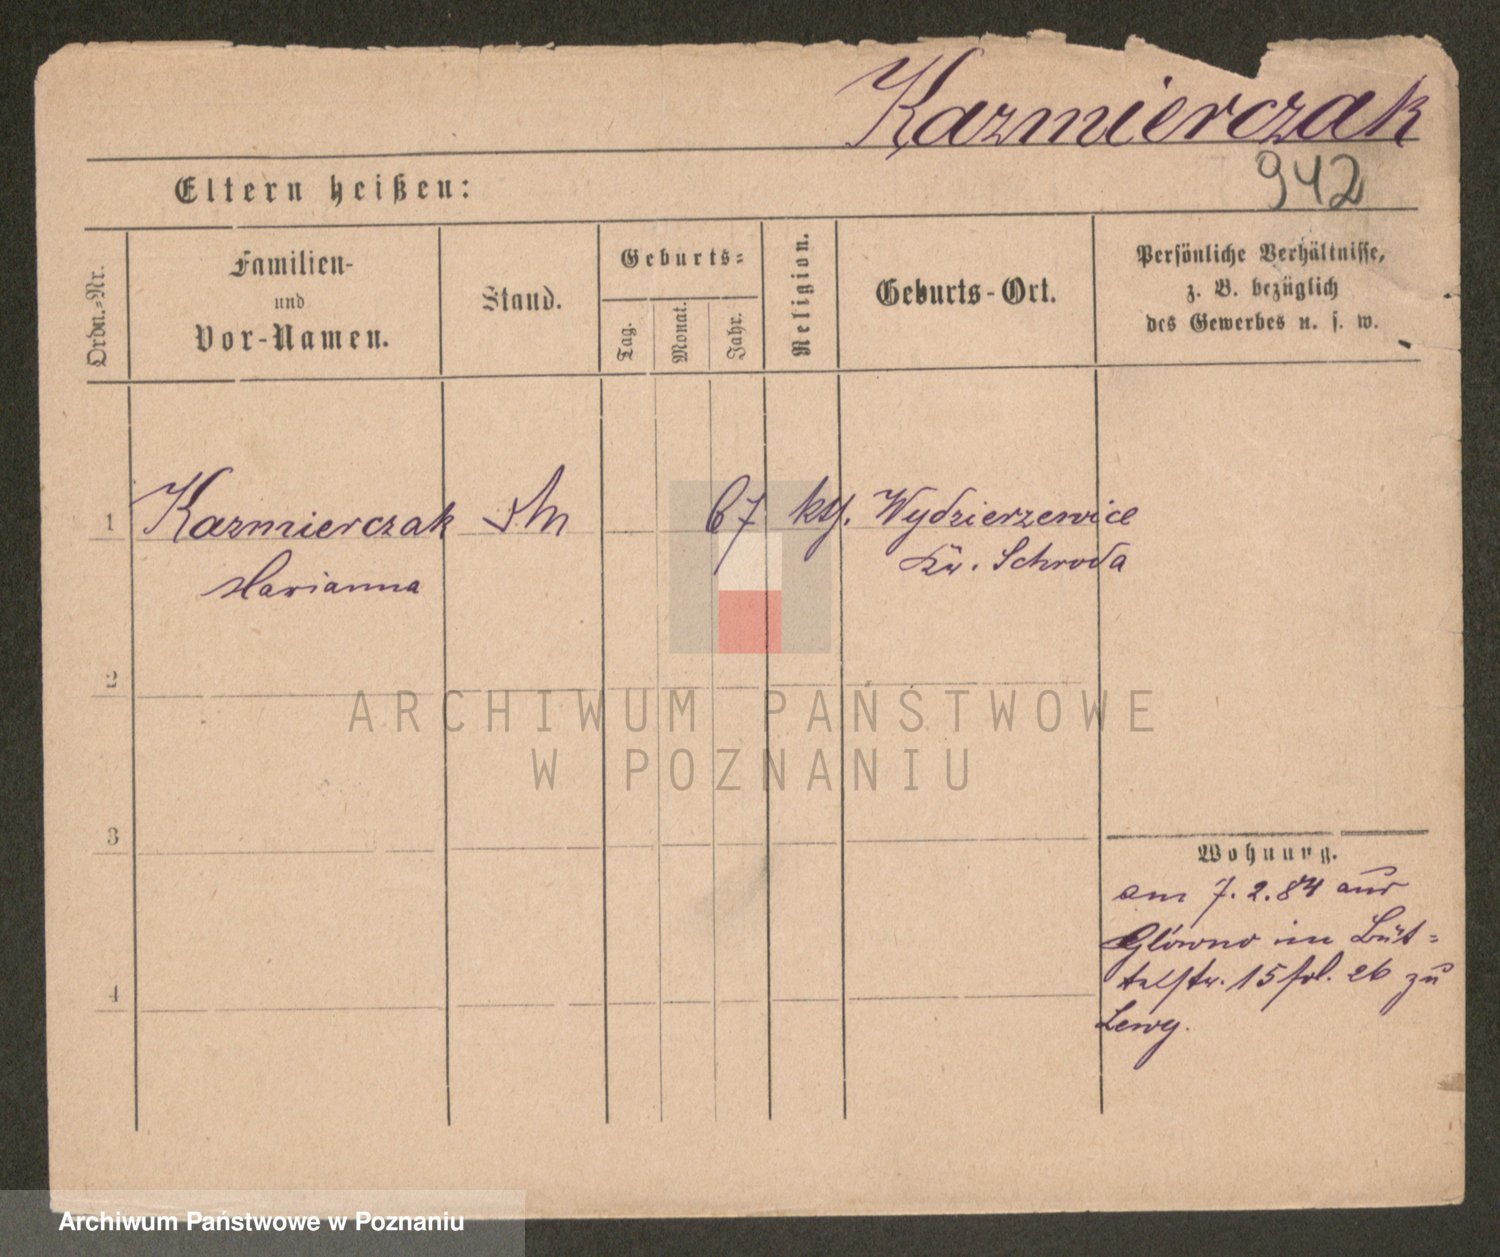 Kazmierczak
942
Eltern heißen:
Ordn.-Nr.
Familien-
und
Vor-Namen.
Stand.
Geburts-
Tag.
Monat.
Jahr.
Religion.
Geburts-Ort.
Persönliche Verhältnisse,
z. B. bezüglich
des Gewerbes u. s. w.
1
Kazmierczak
Marianna
67
kth.
Wydzierzewice
Kr. Schroda
2
3
4
Wohnung.
am 7.2.84 aus
Glowno in Büt-
telstr. 15 fol. 26 zu
Lewy.
ARCHIWUM PAŃSTWOWE
W POZNANIU
Archiwum Państwowe w Poznaniu